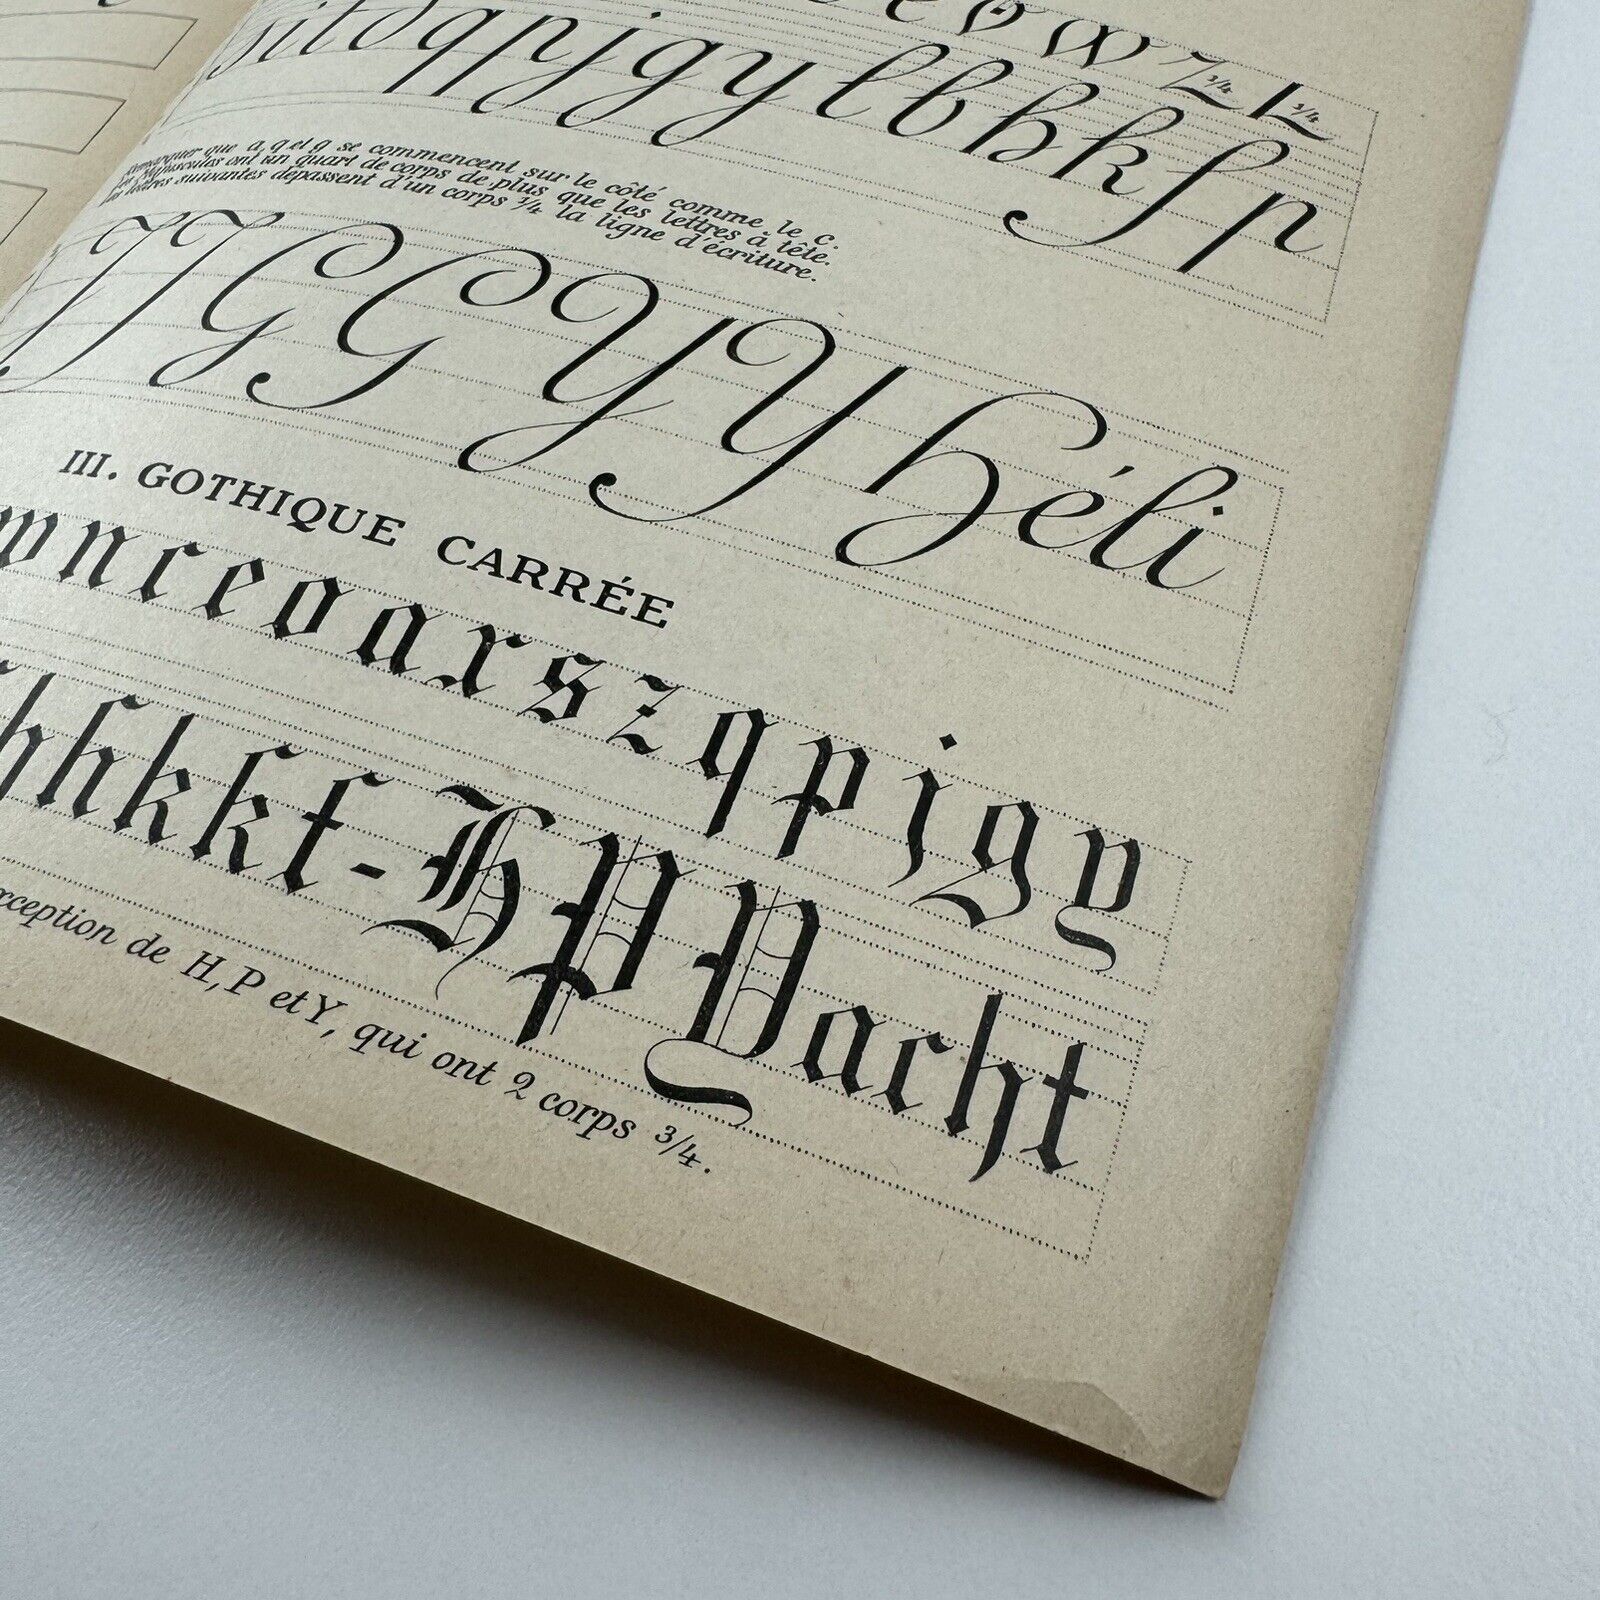 e o w Z 3/4 L 3/4
j i t d q p j g y l b h k f p
Remarquer que a, q et g se commencent sur le côté comme le c.
Les Majuscules ont un quart de corps de plus que les lettres à tête.
les lettres suivantes dépassent d'un corps 3/4 la ligne d'écriture.
J J G G Y Y Héli
III. GOTHIQUE CARRÉE
w n c e o a x s z q p j g y
h h k k f t - H P Yacht
exception de H, P et Y, qui ont 2 corps 3/4.